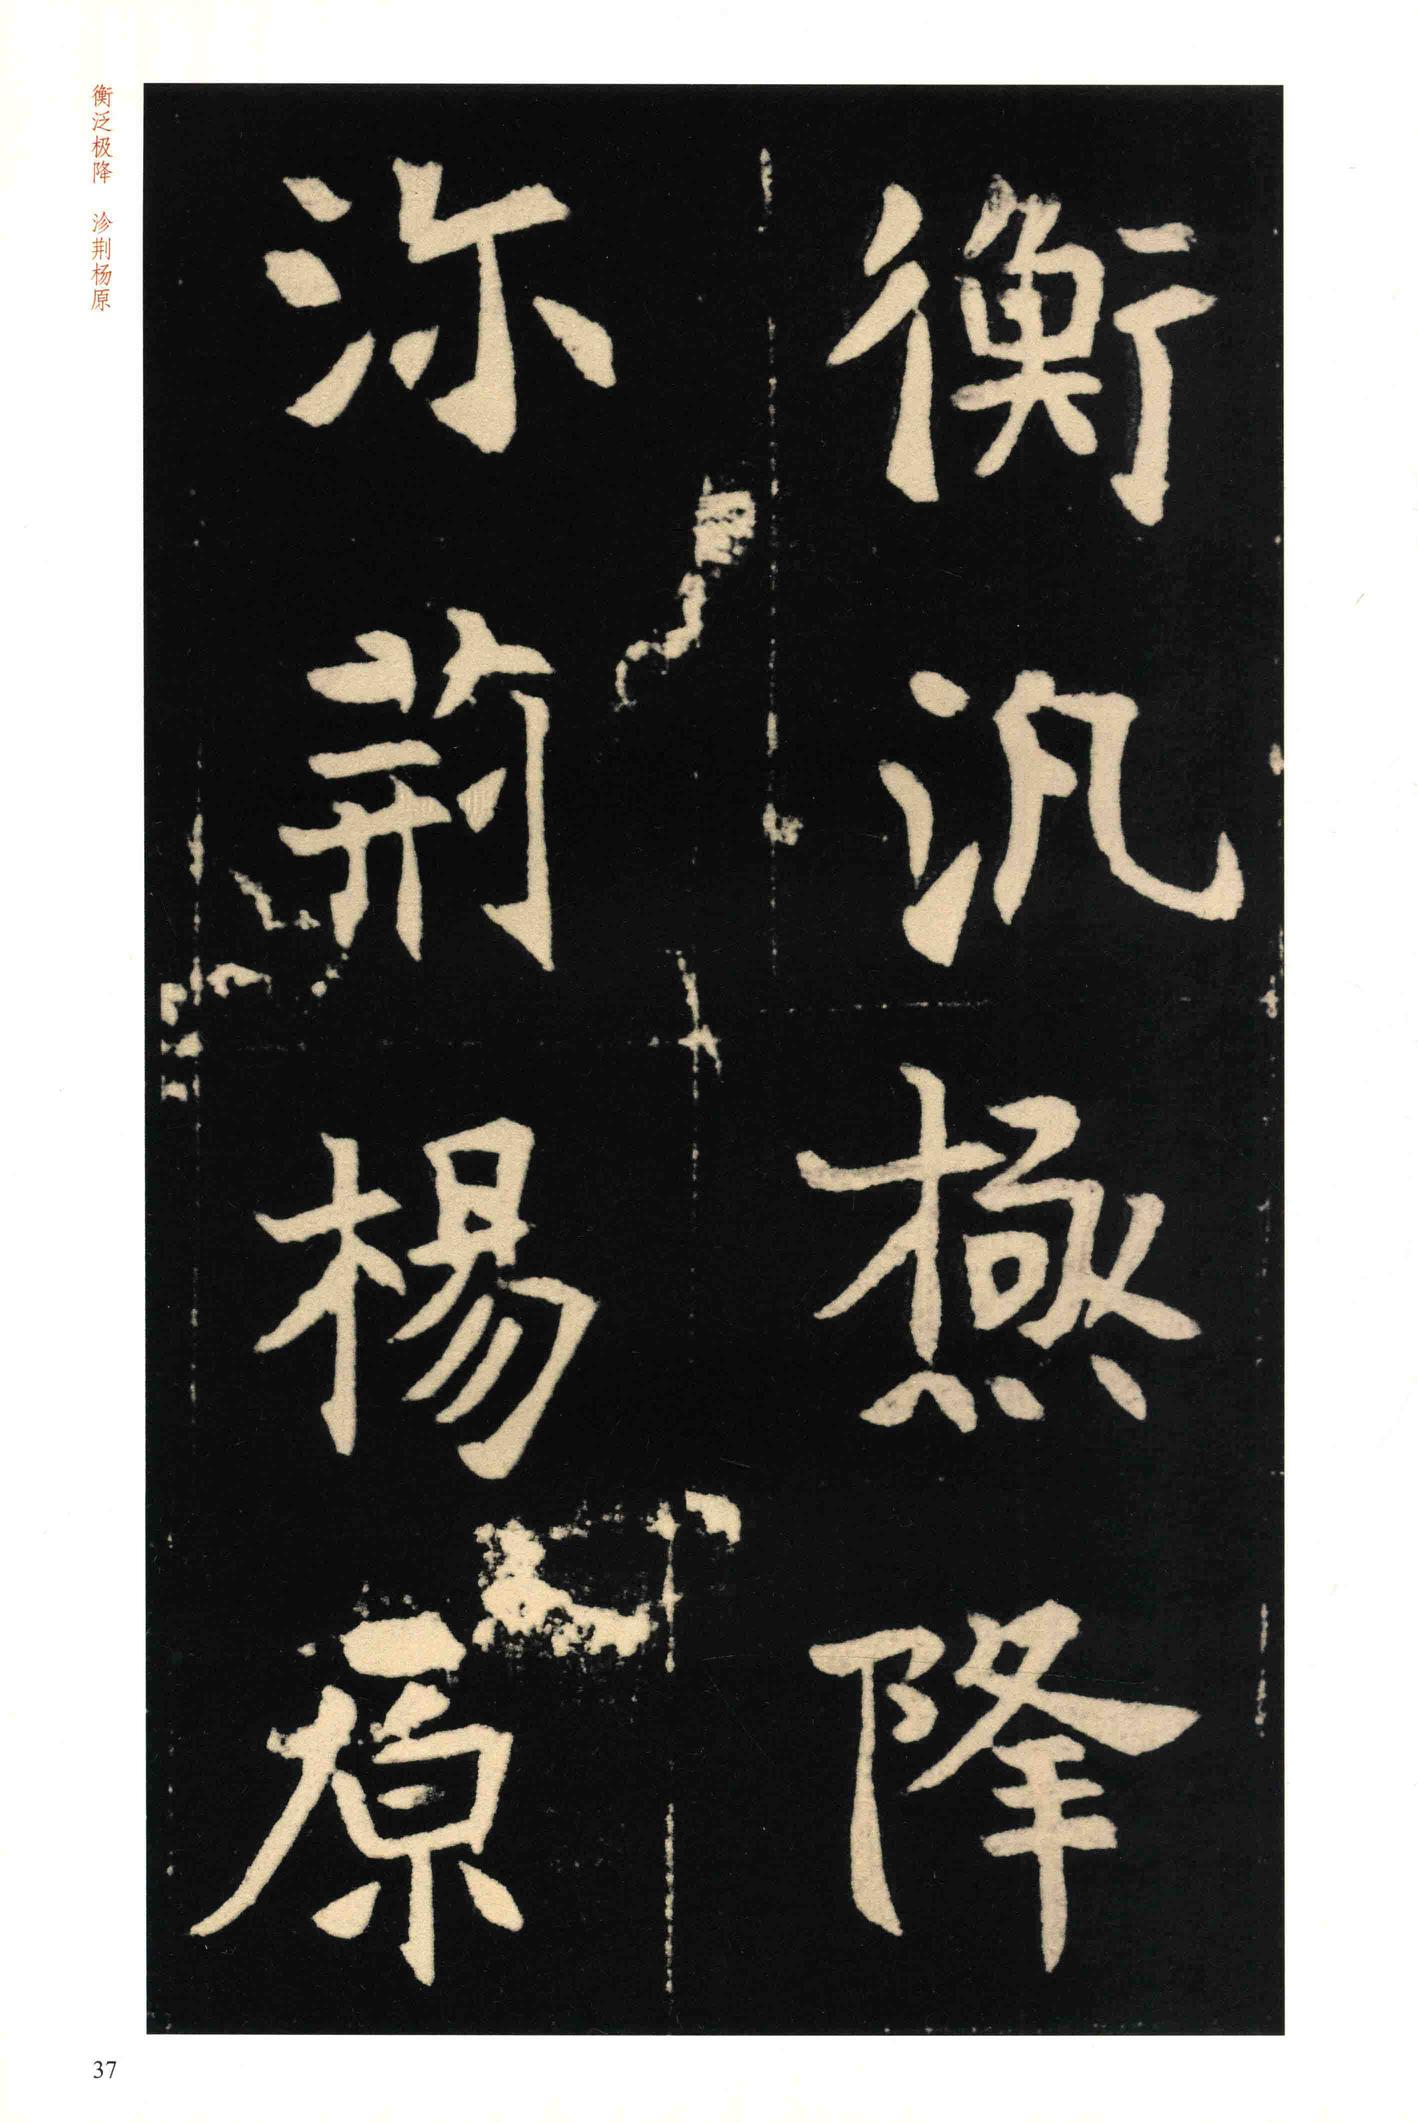 衡汎極降
沵荊楊原
衡泛极降　沴荆杨原
37